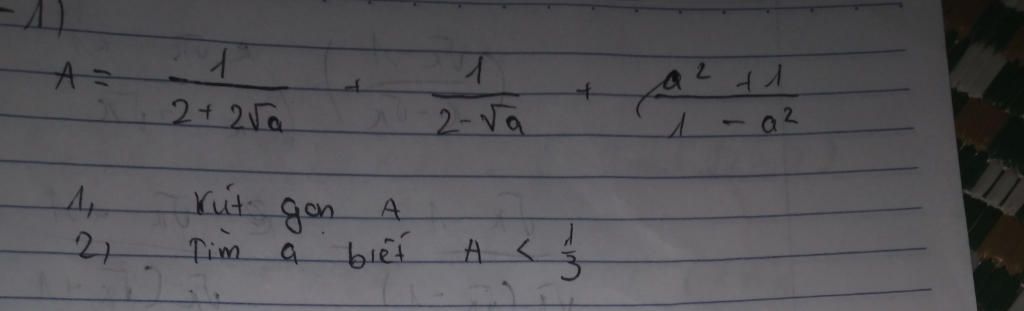 - 1)
A = 1/(2 + 2√a) + 1/(2 - √a) + (a² + 1)/(1 - a²)
1, rút gọn A
2, Tìm a biết A < 1/3